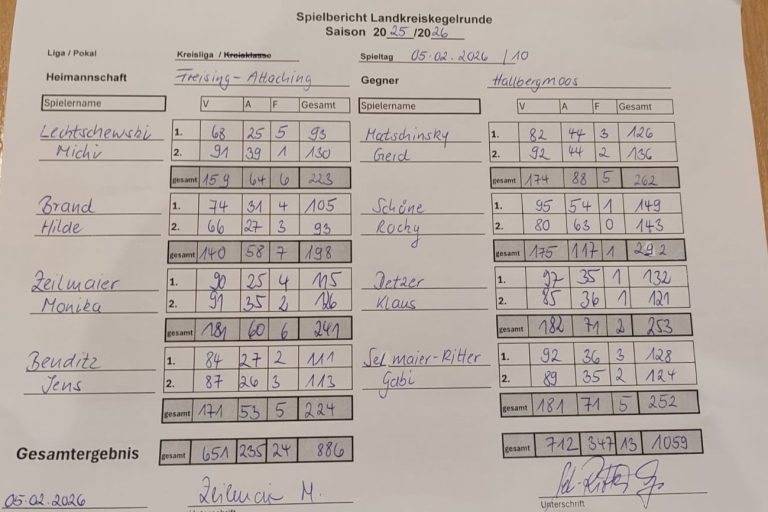 Spielbericht Landkreiskegelrunde
Saison 2025/2026
Liga / Pokal Kreisliga / Kreisklasse Spieltag 05.02.2026 / 10
Heimannschaft Freising - Attaching Gegner Hallbergmoos
Spielername V A F Gesamt Spielername V A F Gesamt
Lechtschewski 1. 68 25 5 93 Matschinsky 1. 82 44 3 126
Michi 2. 91 39 1 130 Gerd 2. 92 44 2 136
gesamt 159 64 6 223 gesamt 174 88 5 262
Brand 1. 74 31 4 105 Schöne 1. 95 54 1 149
Hilde 2. 66 27 3 93 Rochy 2. 80 63 0 143
gesamt 140 58 7 198 gesamt 175 117 1 292
Zeilmaier 1. 90 25 4 115 Detzer 1. 97 35 1 132
Monika 2. 91 35 2 126 Klaus 2. 85 36 1 121
gesamt 181 60 6 241 gesamt 182 71 2 253
Benditz 1. 84 27 2 111 Selmaier-Ritter 1. 92 36 3 128
Jens 2. 87 26 3 113 Gabi 2. 89 35 2 124
gesamt 171 53 5 224 gesamt 181 71 5 252
Gesamtergebnis gesamt 651 235 24 886 gesamt 712 347 13 1059
05.02.2026 Zeilmaier M.
Unterschrift Unterschrift